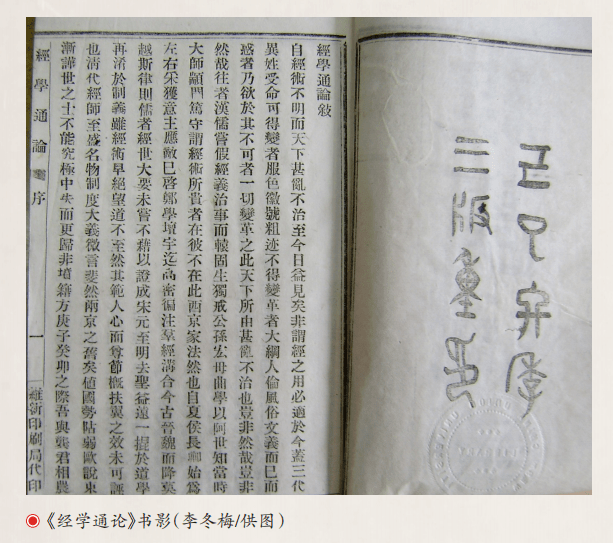 三版重印
經學通論敘
自經術不明而天下甚亂不治至今日益見矣非謂經之用必適於今蓋三代
異姓受命可得變者服色徽號粗迹不得變革者大綱人倫風俗文義而巳而
惑者乃欲於其不可者一切變革之此天下所由甚亂不治也豈非然哉豈非
然哉往者漢儒嘗假經義治事而轅固生獨戒公孫宏毋曲學以阿世知當時
大師顓門篤守謂經術所貴者在彼不在此西京家法然也自夏侯長卿始爲
左右采獲意主應敵巳啓鄭學壇宇迄高密徧注羣經溝合今古晉魏而降莫
越斯律則儒者經世大要未嘗不藉以證成宋元至明去聖益遠一掍於道學
再淆於制義雖經術早絕望道不至然其範人心而尊節槪扶翼之效未可誣
也淸代經師至盛名物制度大義微言斐然兩京之舊矣値國勢阽弱歐說東
漸譁世之士不能究極中失而更歸非墳籍方庚子癸卯之際吾與龔君相農
經學通論 序 一 維新印刷局代印
《经学通论》书影(李冬梅/供图)